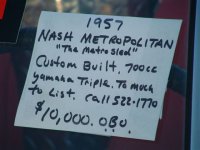 1957
NASH METROPOLITAN
"The Metro Sled"
Custom Built. 700cc
Yamaha Triple. To much
to List. Call 522-1770
$10,000. OBO.